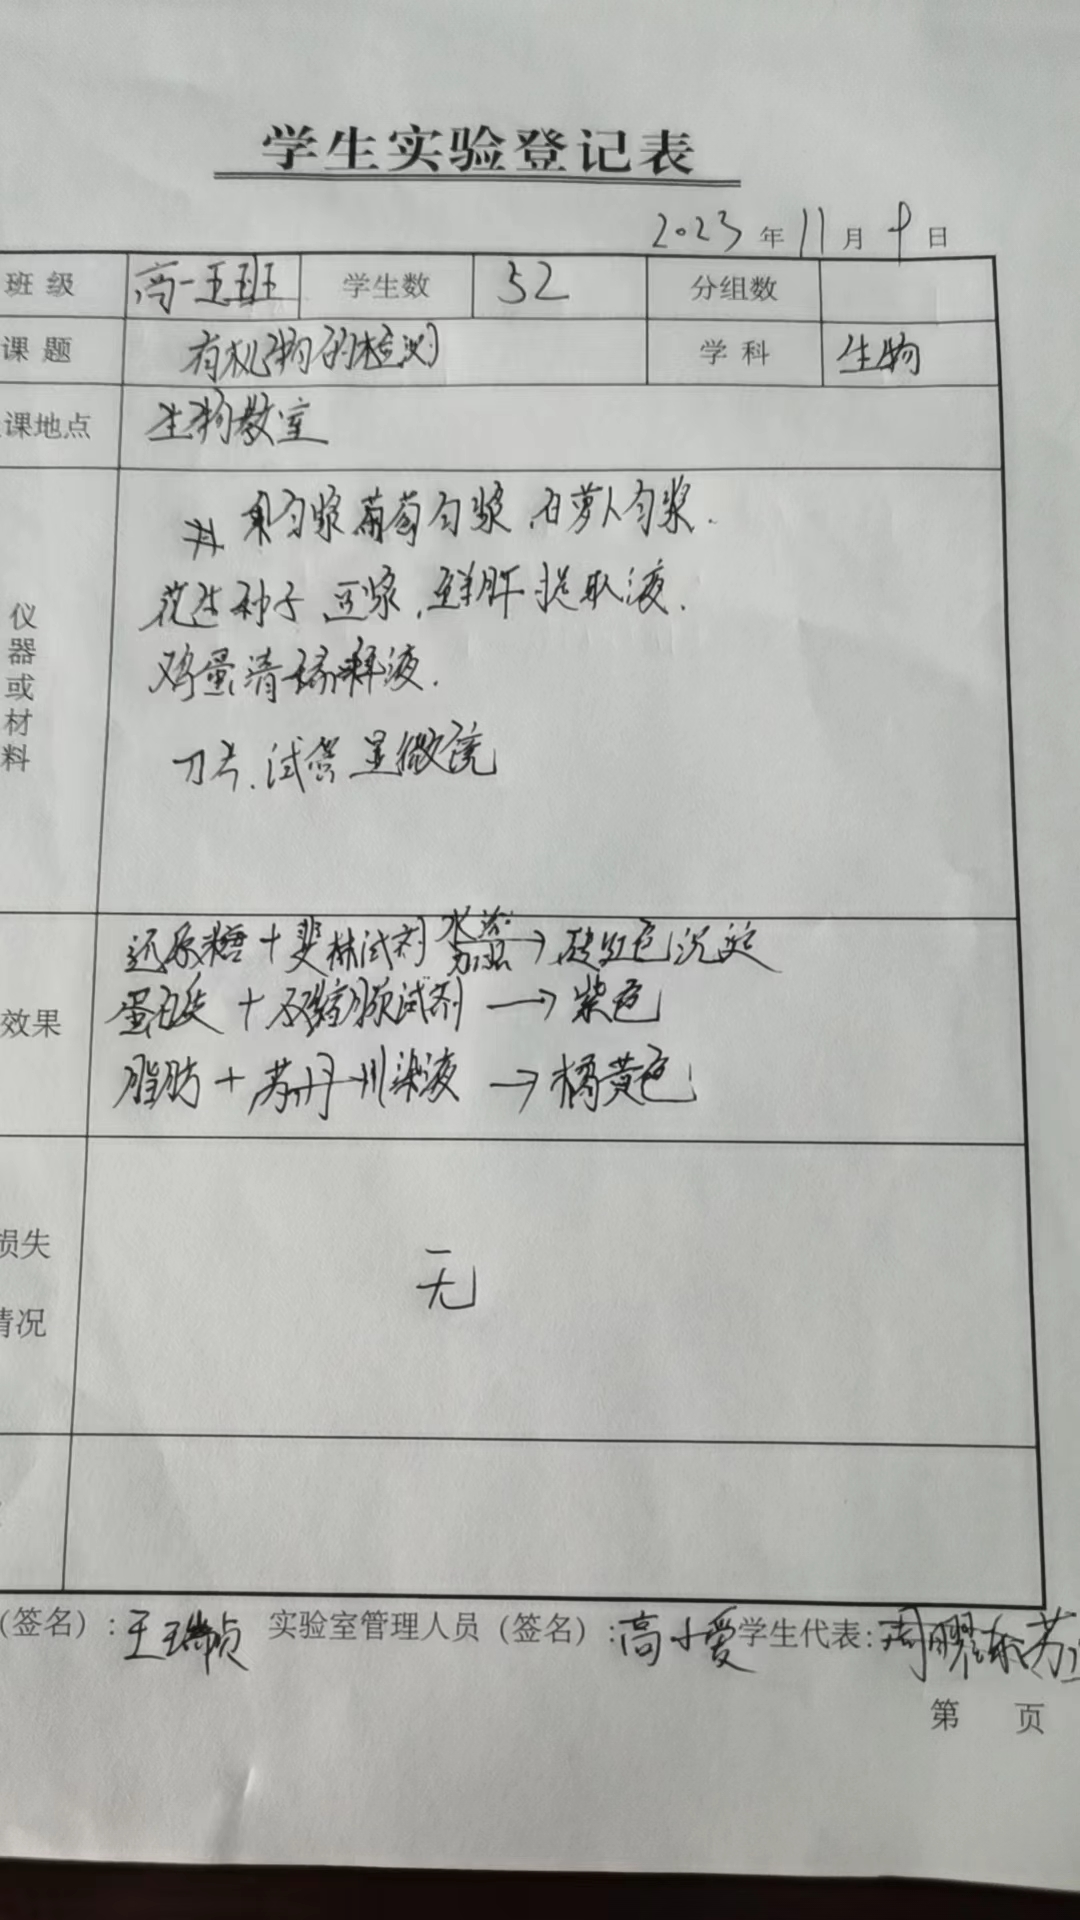 学生实验登记表
2023年11月9日
班级 高一五班 学生数 52 分组数
课题 有机物的检测 学科 生物
课地点 生物教室
仪器或材料
果匀浆 葡萄匀浆、白萝卜匀浆.
花生种子 豆浆、鲜肝提取液.
鸡蛋清稀释液.
刀片、试管 显微镜
效果
还原糖 + 斐林试剂 水浴加温→ 砖红色沉淀
蛋白质 + 双缩脲试剂 → 紫色
脂肪 + 苏丹III染液 → 橘黄色
损失
情况
无
(签名):王瑞帧 实验室管理人员(签名):高小爱 学生代表:周
第 页